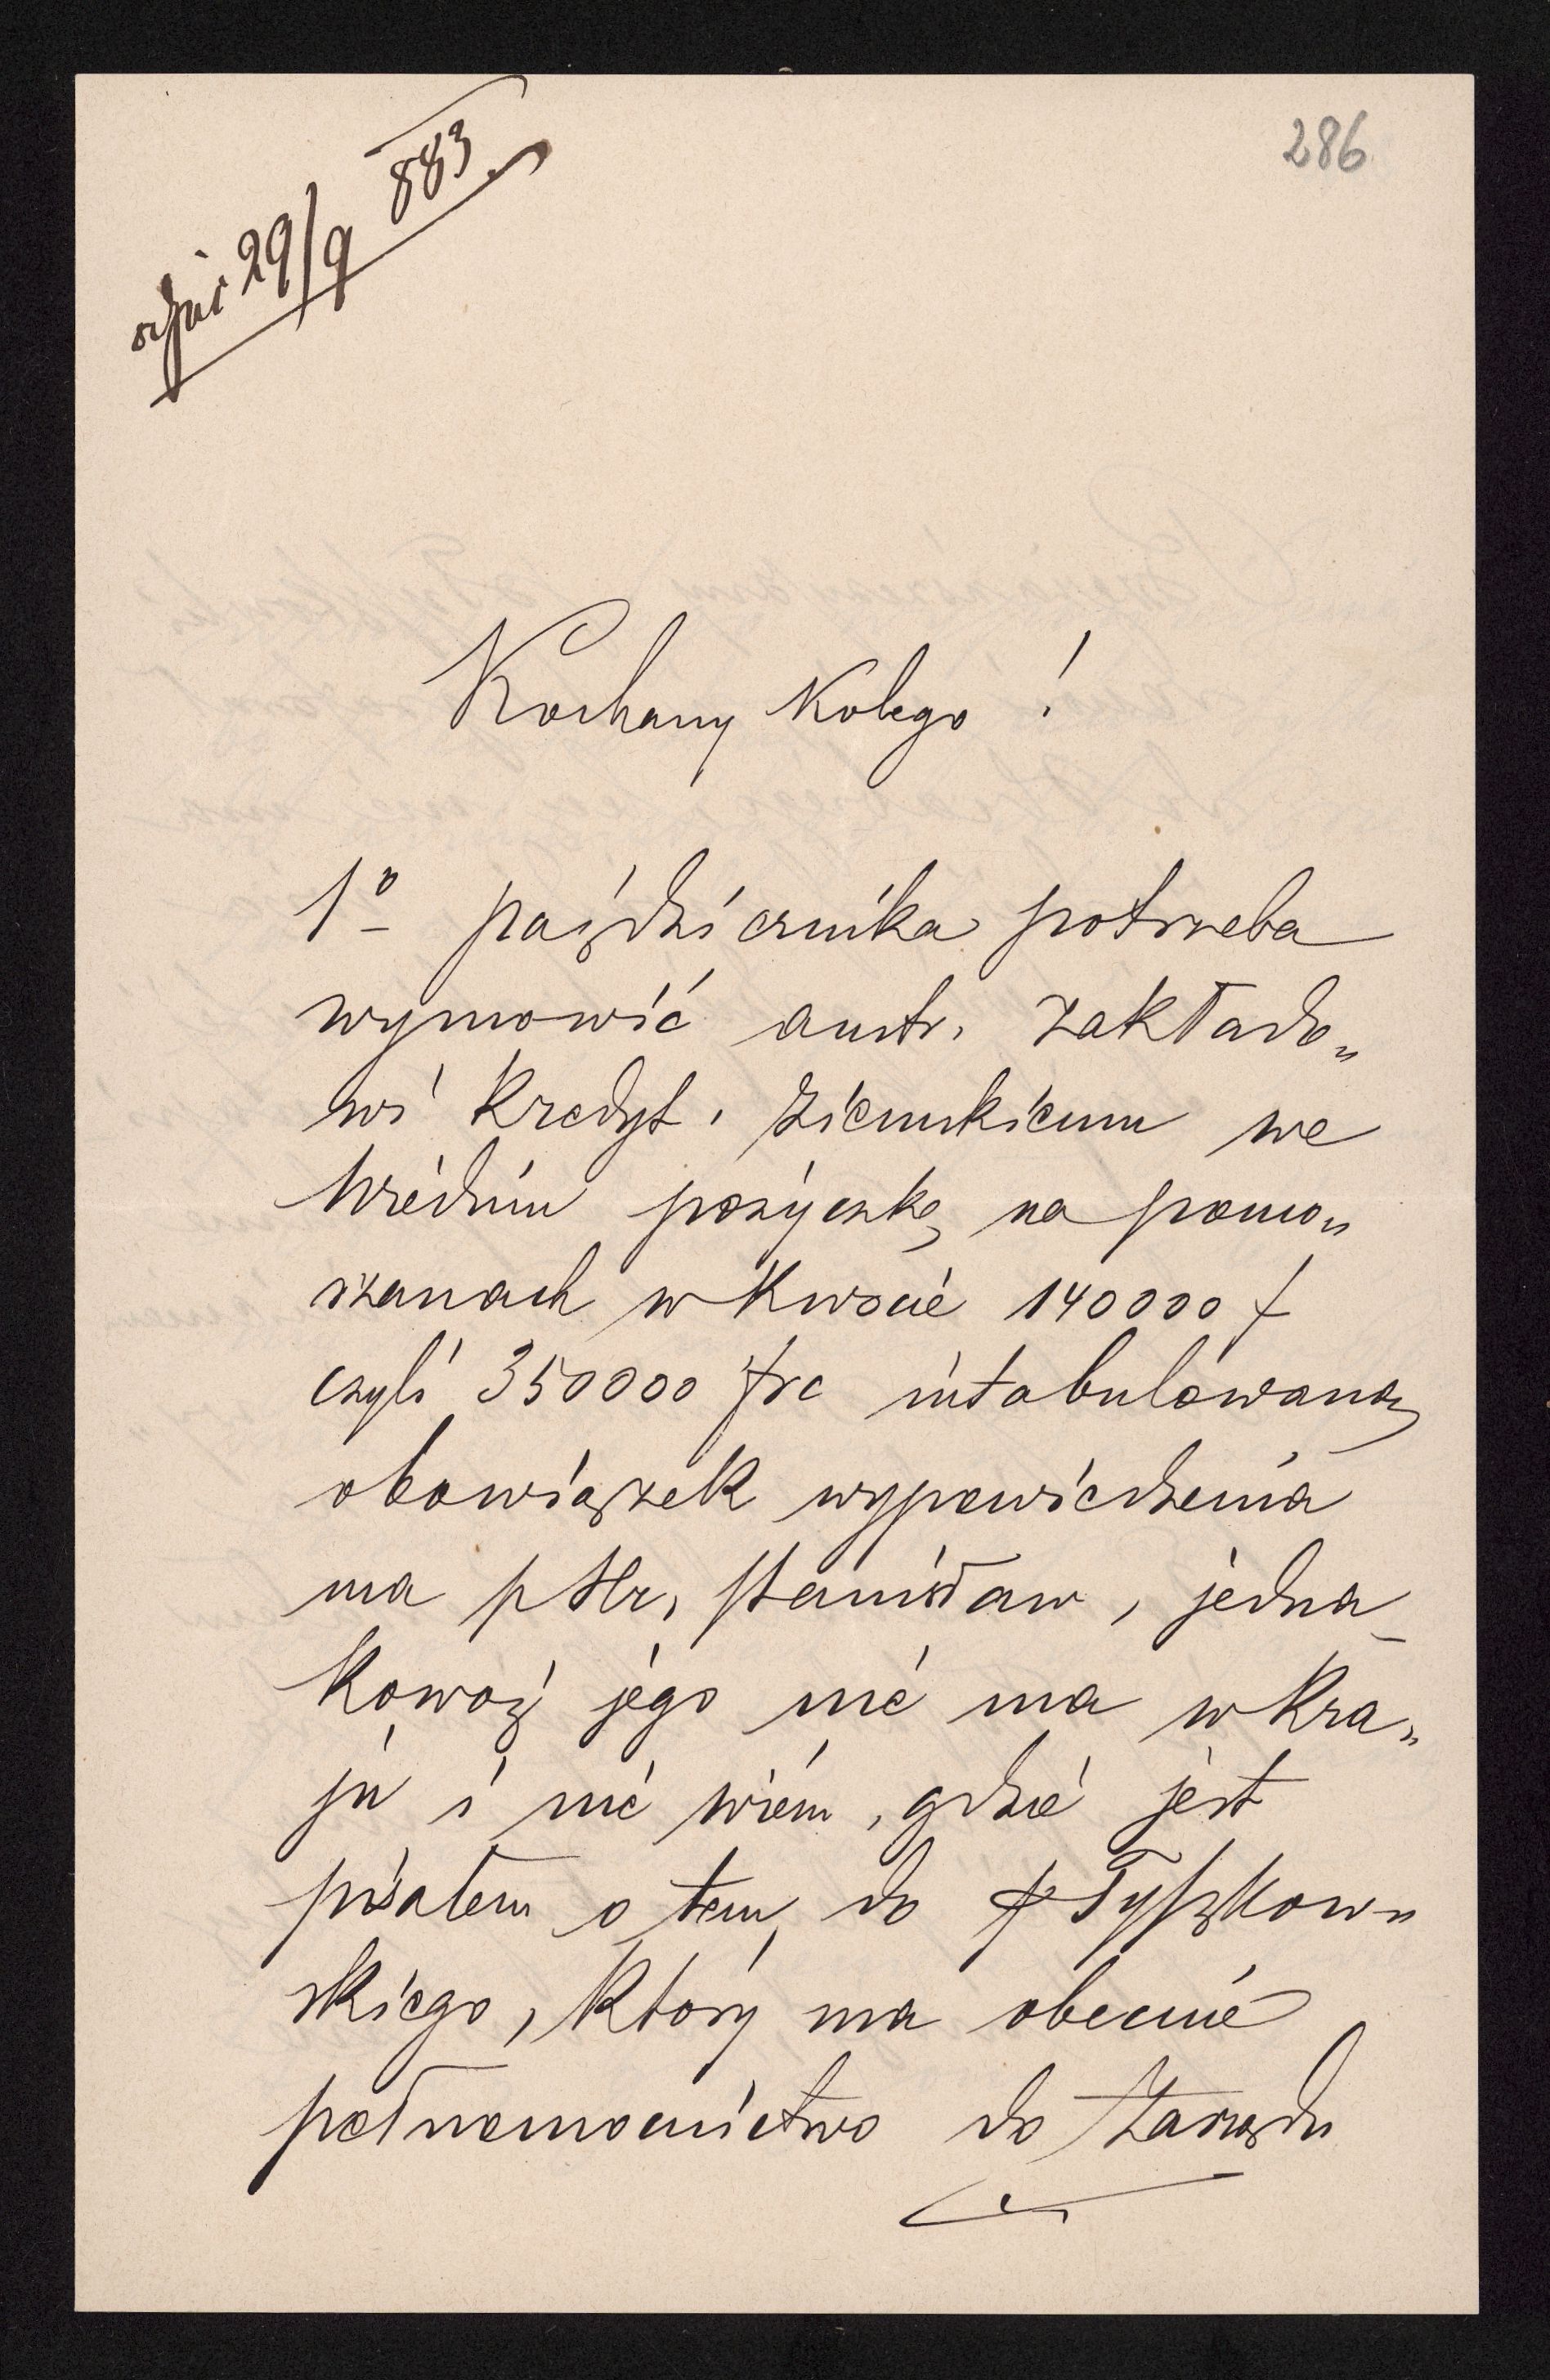 286
29/9 883
Kochany Kolego !
1º paździérnika potrzeba
wymowić austr. zakłado„
wi kredyt. ziemskiemu we
Wiédniu pożyczkę na pomo„
rzanach w kwocie 140000 f
czyli 350000 frc intabulowaną
obowiązek wypowiedzenia
ma p Hr. Stanisław, jedna_
kowoż jego nié ma w kra„
ju i nié wiém, gdzié jest
pisałem o tem do p Tyszkow„
skiego, który ma obecnié
pełnomocnictwo do Zarządu